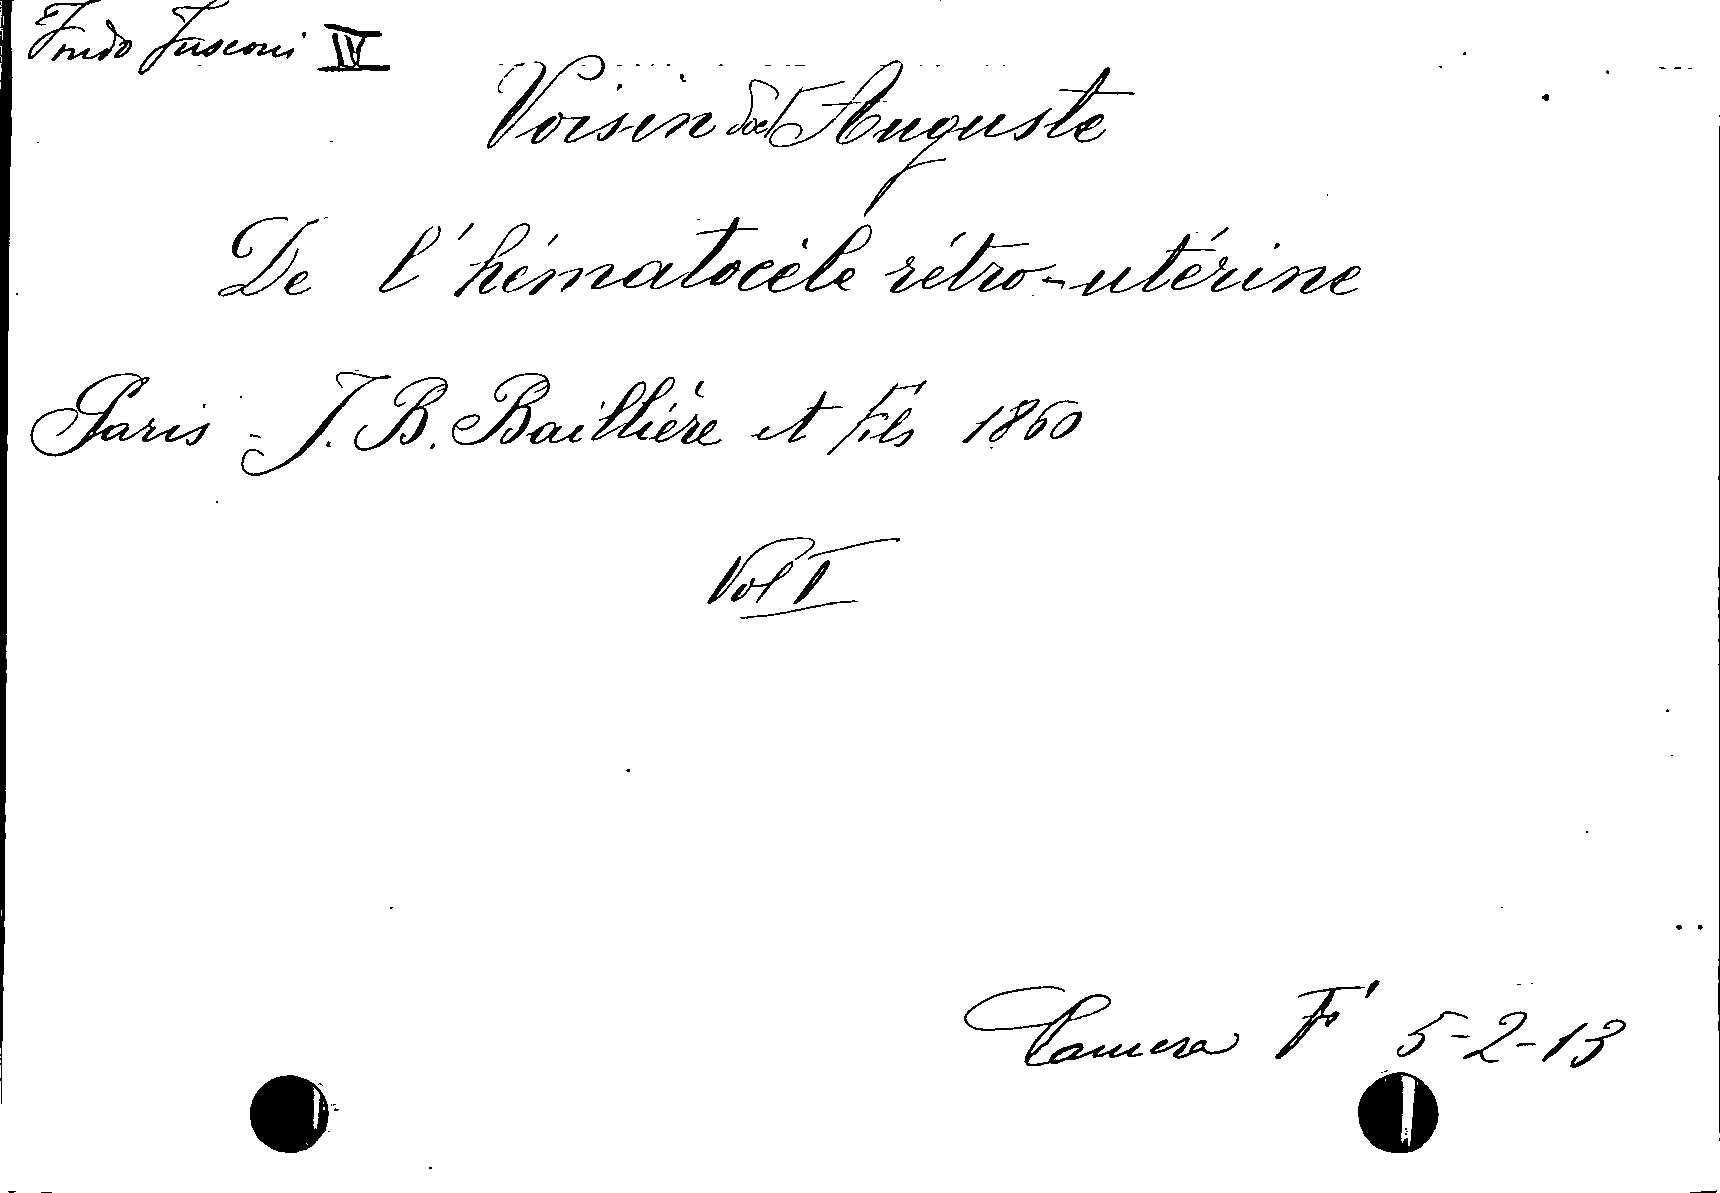 Fondo Fusconi IV
Voisin dot Auguste
De l'hématocèle rétro-utérine
Paris - J. B. Baillière et fils 1860
Vol I
Camera F' 5-2-13